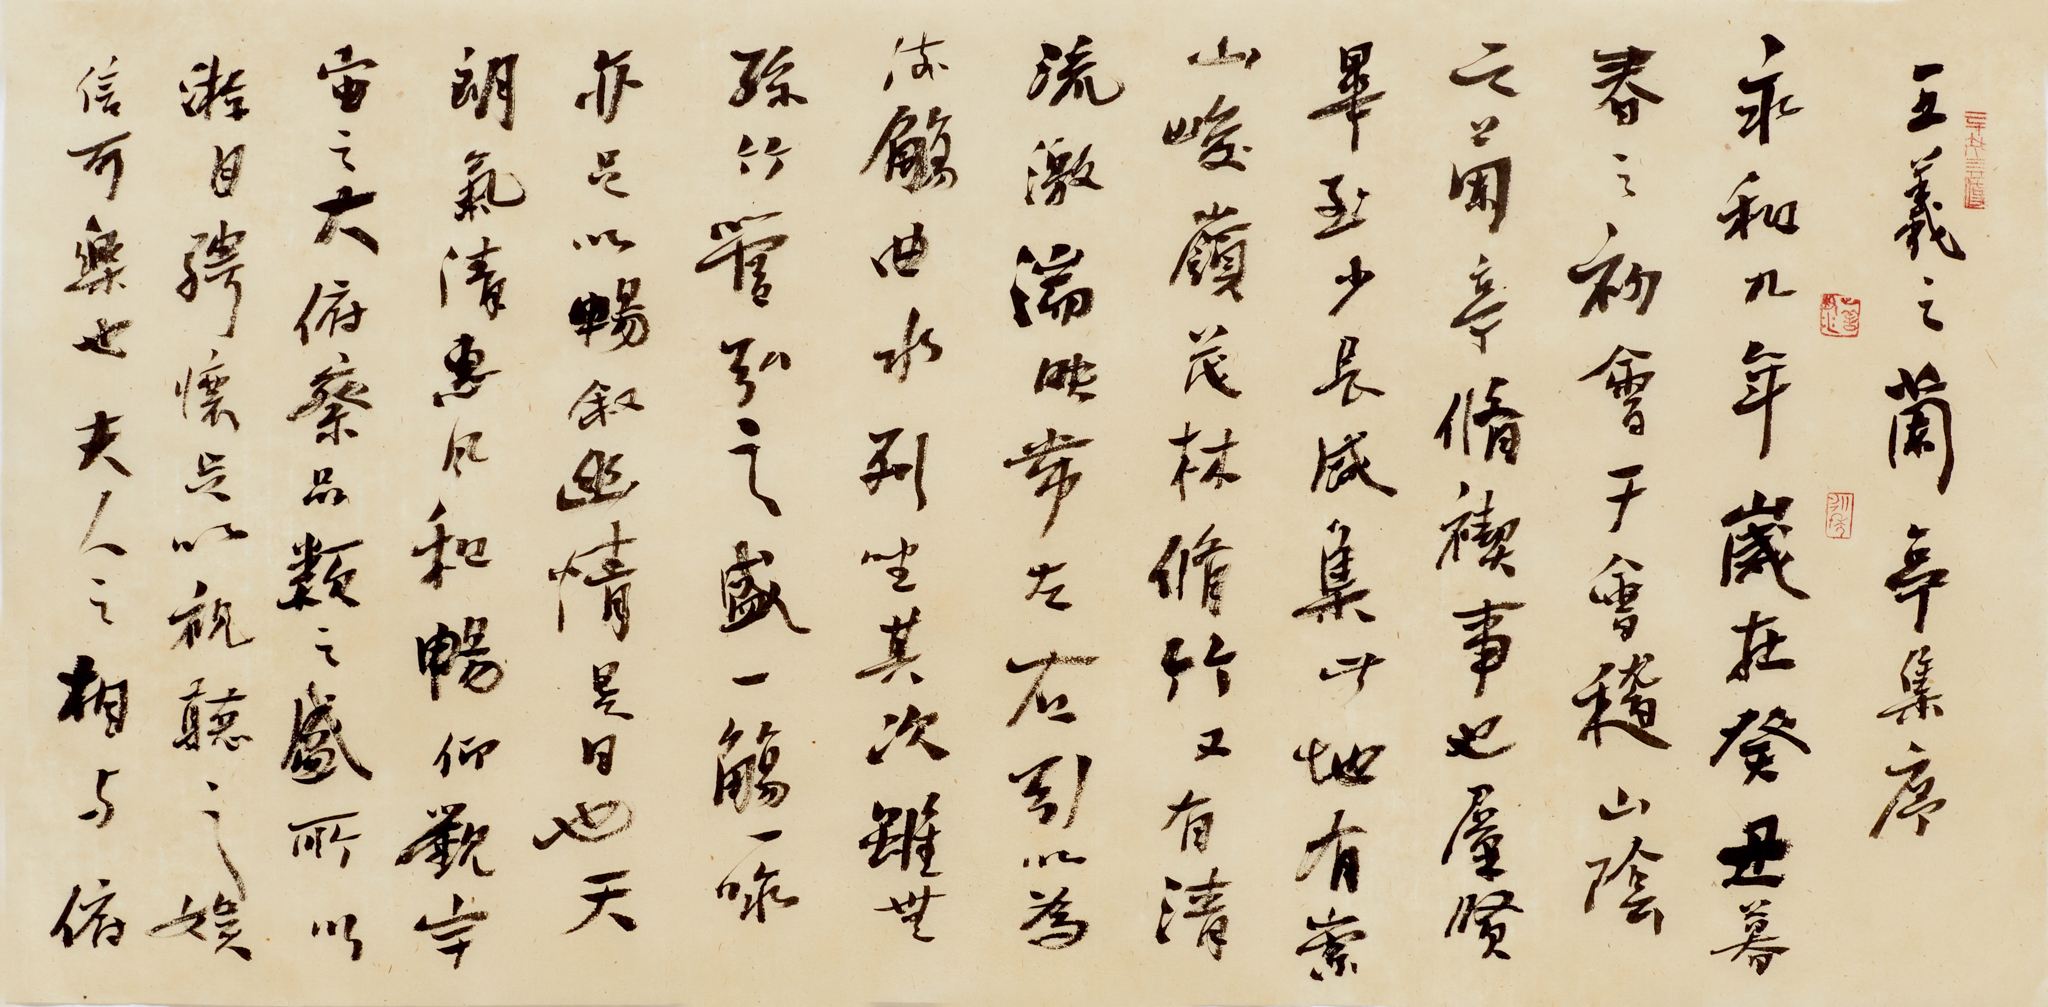 王羲之蘭亭集序
永和九年歲在癸丑暮
春之初會于會稽山陰
之蘭亭脩禊事也羣賢
畢至少長咸集此地有崇
山峻嶺茂林脩竹又有清
流激湍映帶左右引以為
流觴曲水列坐其次雖無
絲竹管弦之盛一觴一詠
亦足以暢叙幽情是日也天
朗氣清惠風和暢仰觀宇
宙之大俯察品類之盛所以
遊目騁懷足以視聽之娛
信可樂也夫人之相與俯